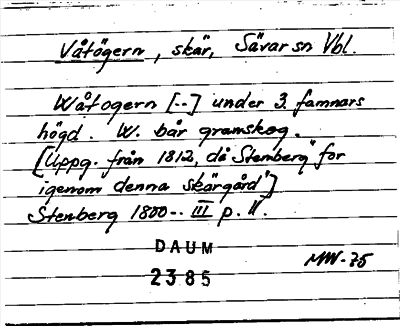 Våtögern, skär, Sävar sn Vbl.
Wåtogern [--] under 3. famnars
högd. W. bär granskog.
[Uppg. från 1812, då Stenberg "for
igenom denna skärgård"]
Stenberg 1800-- III p. 11.
DAUM
2385
MW-75